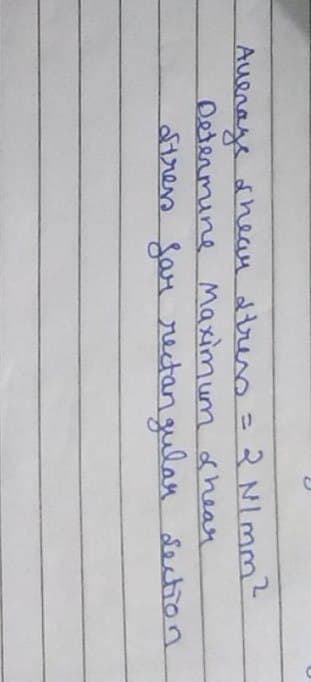 Average shear stress = 2 N/mm²
Determine Maximum shear
stress for rectangular section